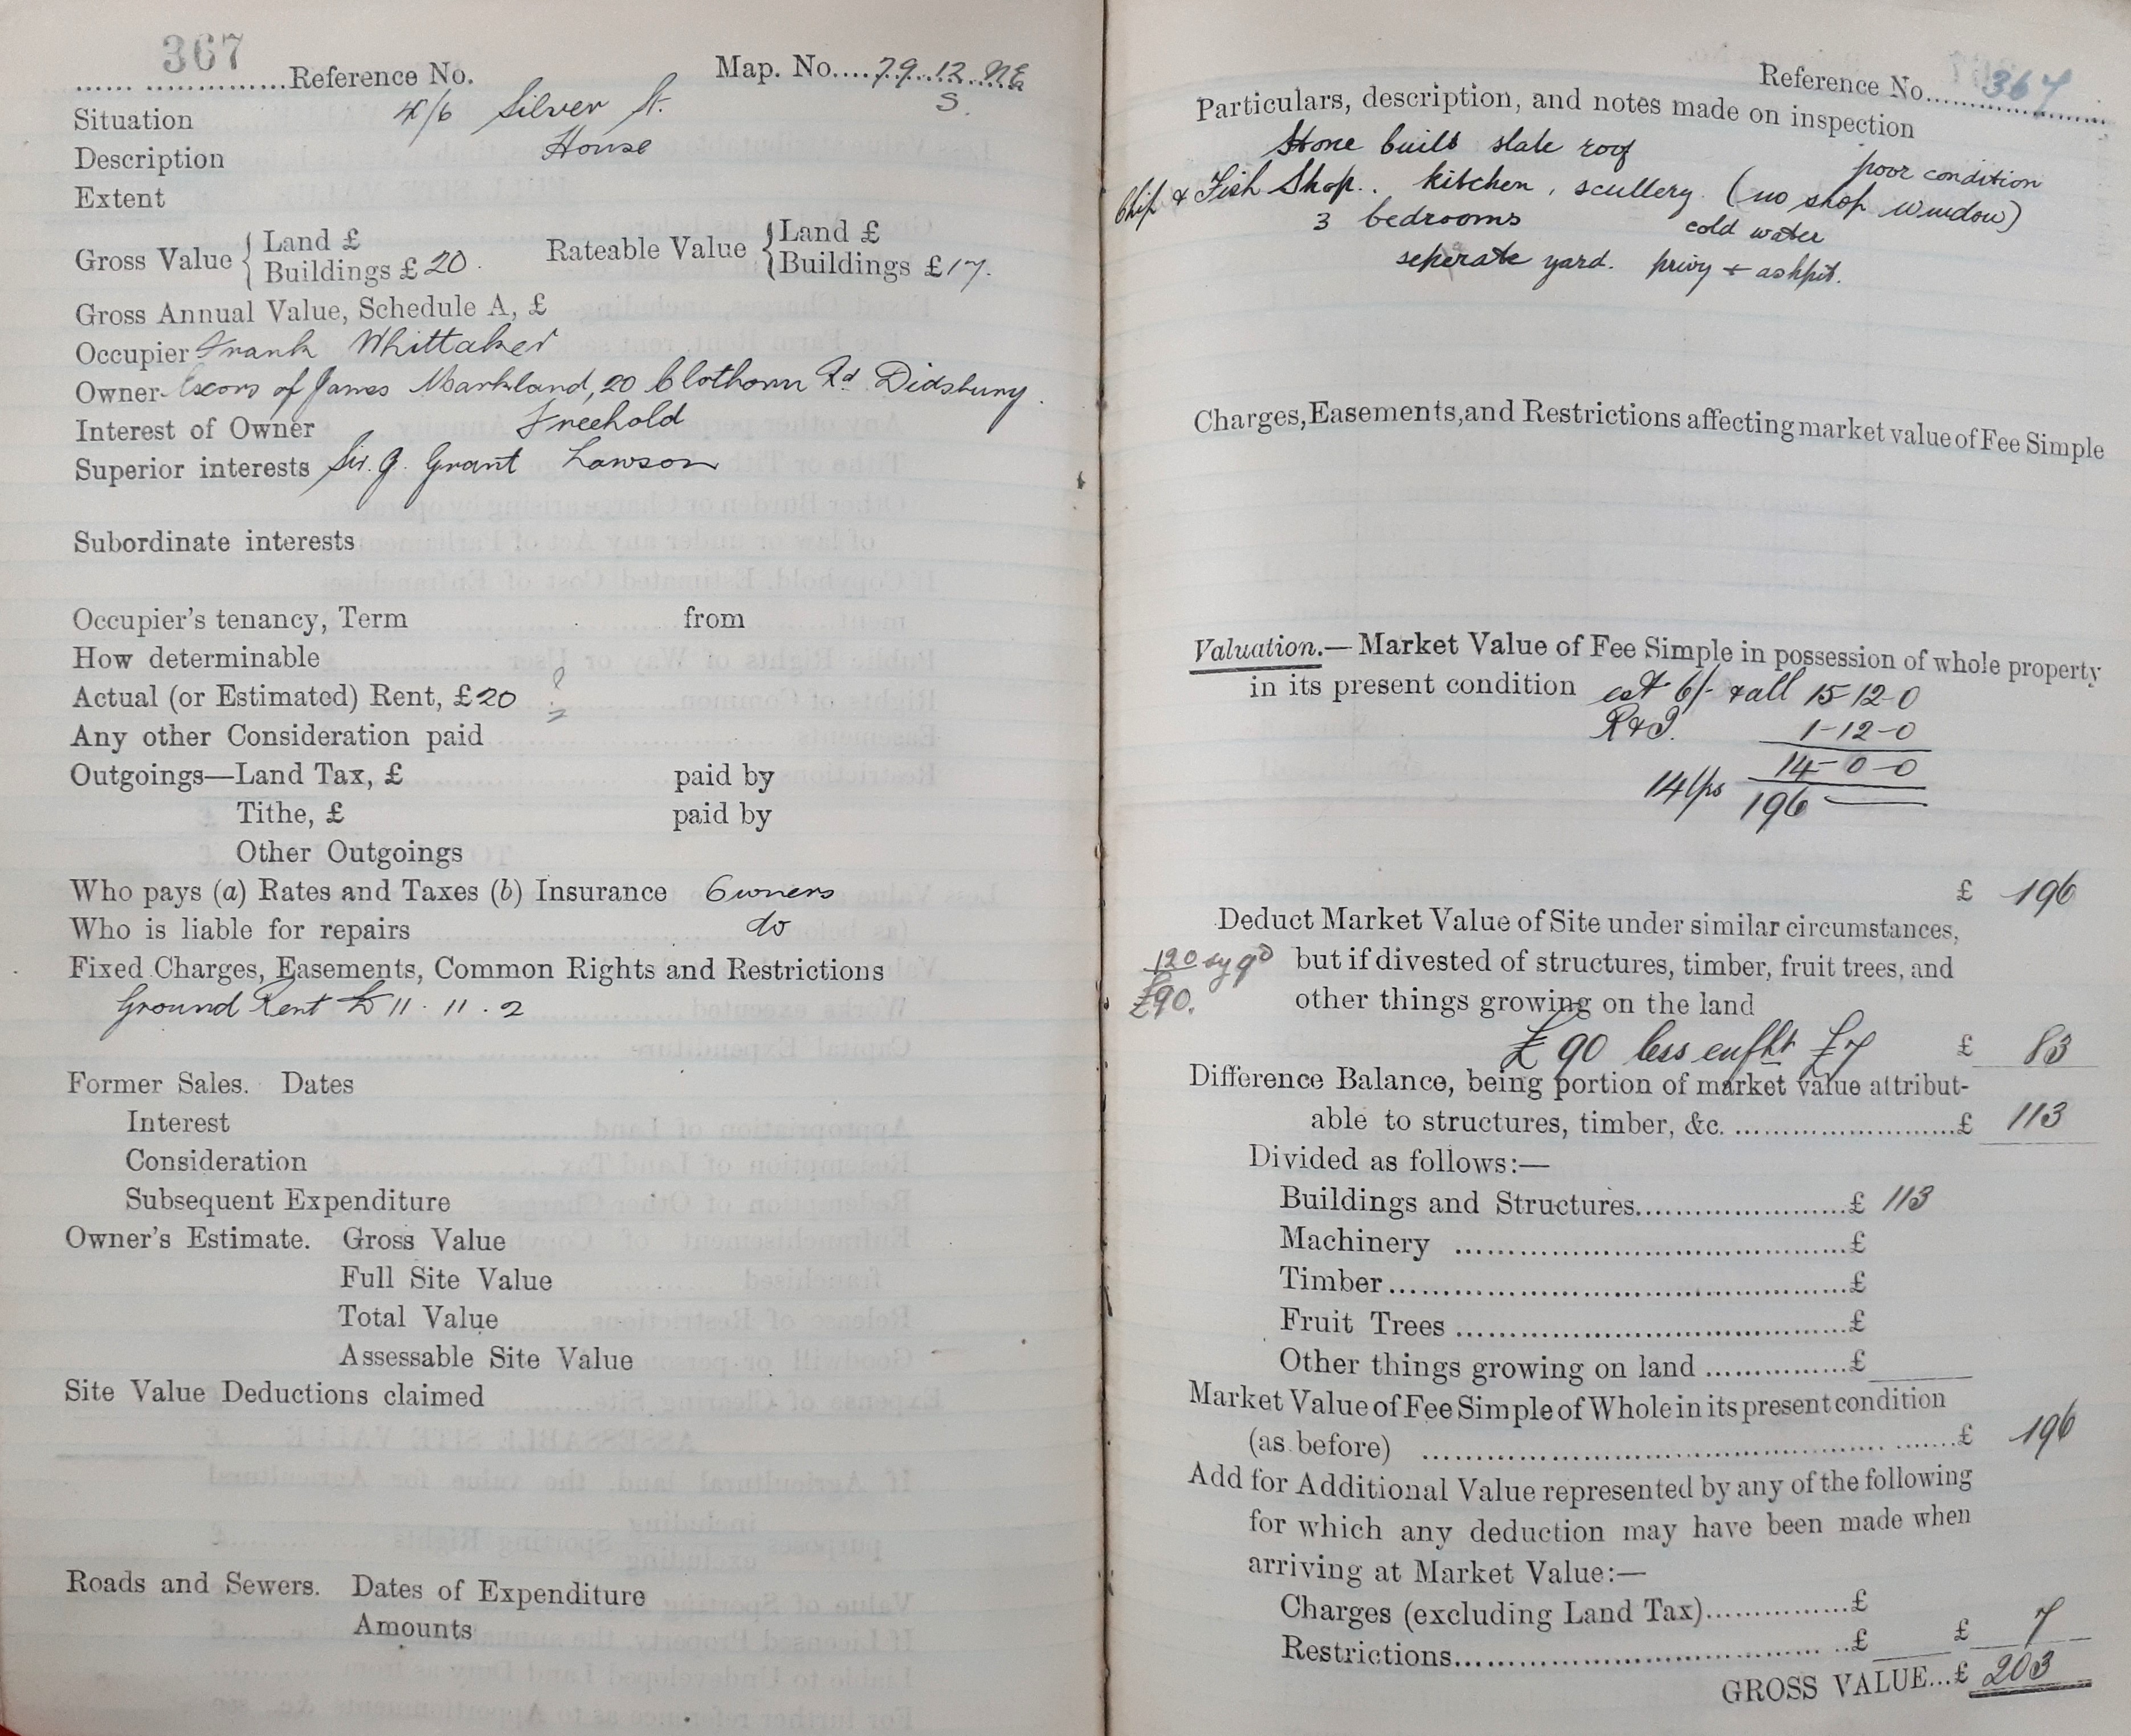 367
...... ..............Reference No. Map. No....79.12.NE
S.
Situation 4/6 Silver St.
Description House
Extent
Gross Value { Land £ Rateable Value { Land £
Buildings £ 20. Buildings £ 17.
Gross Annual Value, Schedule A, £
Occupier Frank Whittaker
Owner Excors of James Markland, 20 Clothorn Rd Didsbury.
Interest of Owner Freehold
Superior interests Sir. J. Grant Lawson
Subordinate interests
Occupier's tenancy, Term from
How determinable
Actual (or Estimated) Rent, £20 ?
Any other Consideration paid
Outgoings—Land Tax, £ paid by
Tithe, £ paid by
Other Outgoings
Who pays (a) Rates and Taxes (b) Insurance Owners
Who is liable for repairs do
Fixed Charges, Easements, Common Rights and Restrictions
Ground Rent £ 11 . 11 . 2
Former Sales. Dates
Interest
Consideration
Subsequent Expenditure
Owner's Estimate. Gross Value
Full Site Value
Total Value
Assessable Site Value
Site Value Deductions claimed
Roads and Sewers. Dates of Expenditure
Amounts
Reference No. 367
Particulars, description, and notes made on inspection
Stone built slate roof poor condition
Chip & Fish Shop.. kitchen, scullery. (no shop window)
3 bedrooms cold water
seperate yard. privy + ashpit.
Charges, Easements, and Restrictions affecting market value of Fee Simple
Valuation.—Market Value of Fee Simple in possession of whole property
in its present condition est 6/- & all 15-12-0
R & I. 1-12-0
14-0-0
14 yps 196 —
£ 196
Deduct Market Value of Site under similar circumstances,
120 sq yd but if divested of structures, timber, fruit trees, and
£90. other things growing on the land
£90 less enfht £7 £ 83
Difference Balance, being portion of market value attribut-
able to structures, timber, &c. ..........................£ 113
Divided as follows:—
Buildings and Structures.........................£ 113
Machinery ..........................................£
Timber..................................................£
Fruit Trees ..........................................£
Other things growing on land ................£
Market Value of Fee Simple of Whole in its present condition
(as before) ..........................................................£ 196
Add for Additional Value represented by any of the following
for which any deduction may have been made when
arriving at Market Value:—
Charges (excluding Land Tax)................£
Restrictions..........................................£ £ 7
GROSS VALUE...£ 203